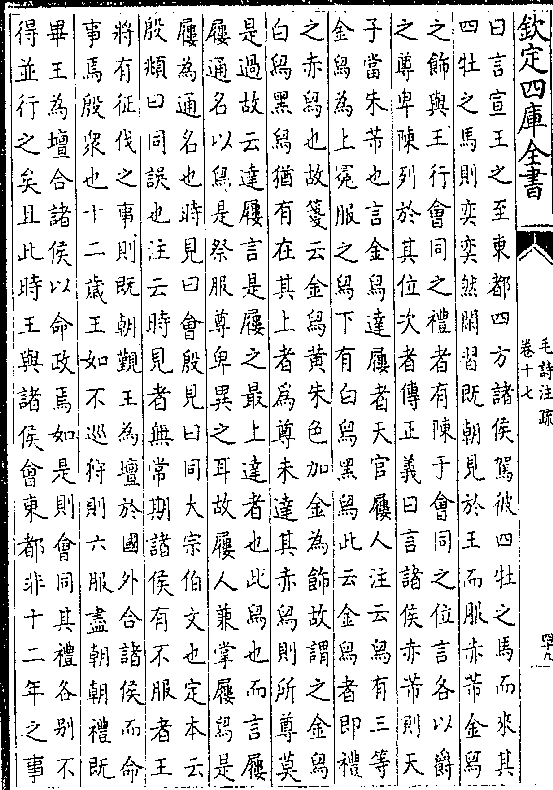 欽定四庫全書
毛詩注疏
卷十七
四十九
曰言宣王之至東都四方諸侯駕彼四牡之馬而來其
四牡之馬則奕奕然閑習既朝見於王而服赤芾金舄
之飾與王行會同之禮者有陳于會同之位言各以爵
之尊卑陳列於其位次者傳正義曰言諸侯赤芾則天
子當朱芾也言金舄達屨者天官屨人注云舄有三等
金舄為上冕服之舄下有白舄黑舄此云金舄者即禮
之赤舄也故箋云金舄黃朱色加金為飾故謂之金舄
白舄黑舄猶有在其上者為尊未達其赤舄則所尊莫
是過故云達屨言是屨之最上達者也此舄也而言屨
屨通名以舄是祭服尊卑異之耳故屨人兼掌屨舄是
屨為通名也時見曰會殷見曰同大宗伯文也定本云
殷頫曰同誤也注云時見者無常期諸侯有不服者王
將有征伐之事則既朝覲王為壇於國外合諸侯而命
事焉殷眾也十二歲王如不巡狩則六服盡朝朝禮既
畢王為壇合諸侯以命政焉如是則會同其禮各別不
得並行之矣且此時王與諸侯會東都非十二年之事